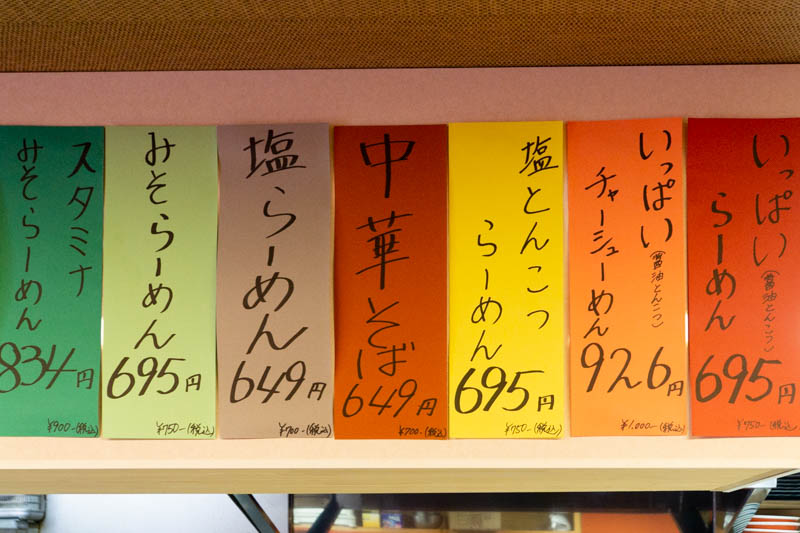 いっぱい(醤油とんこつ)
らーめん
695円
¥750-(税込)
いっぱい(醤油とんこつ)
チャーシューめん
926円
¥1,000-(税込)
塩とんこつ
らーめん
695円
¥750-(税込)
中華そば
649円
¥700-(税込)
塩らーめん
649円
¥700-(税込)
みそらーめん
695円
¥750-(税込)
スタミナ
みそらーめん
834円
¥900-(税込)